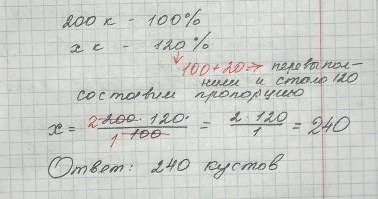 200 к - 100%
x к - 120%
100+20 → перевыпол-
нили и стало 120
составим пропорцию
x = 2 200 · 120 / 1 100 = 2 · 120 / 1 = 240
Ответ: 240 кустов